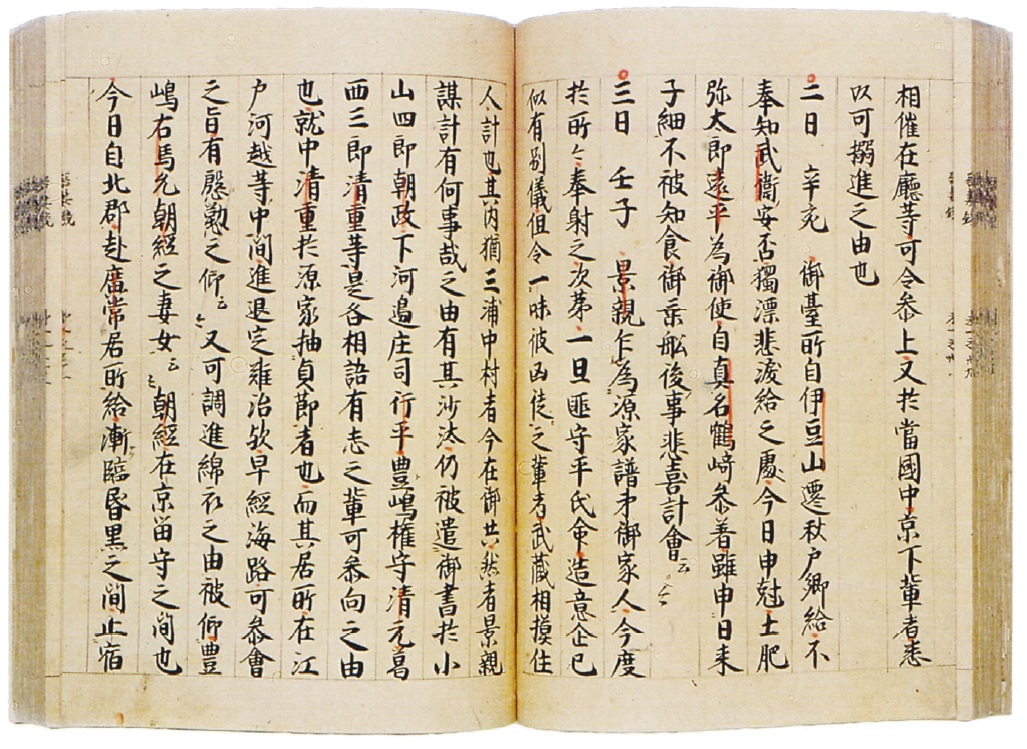 相催在廳等可令参上又於當國中京下輩者悉
以可搦進之由也
二日　辛亥　御臺所自伊豆山遷秋戸郷給不
奉知武衛安否獨漂悲涙給之處今日申尅土肥
弥太郎遠平為御使自真名鶴﨑参着雖申日来
子細不被知食御乗舩後事悲喜計會云々
三日　壬子　景親乍為源家譜弟御家人今度
於所々奉射之次第一旦匪守平氏命造意企已
似有別儀但令一味彼凶徒之輩者武蔵相摸住
人計也其内猶三浦中村者今在御共然者景親
謀計有何事哉之由有其沙汰仍被遣御書於小
山四郎朝政下河邊庄司行平豊嶋権守清元葛
西三郎清重等是各相語有志之輩可参向之由
也就中清重於源家抽貞節者也而其居所在江
戸河越等中間進退定難治欤早經海路可参會
之旨有慇懃之仰云々又可調進綿衣之由被仰豊
嶋右馬允朝經之妻女云々朝經在京留守之間也
今日自北郡赴廣常居所給漸臨昏黒之間止宿